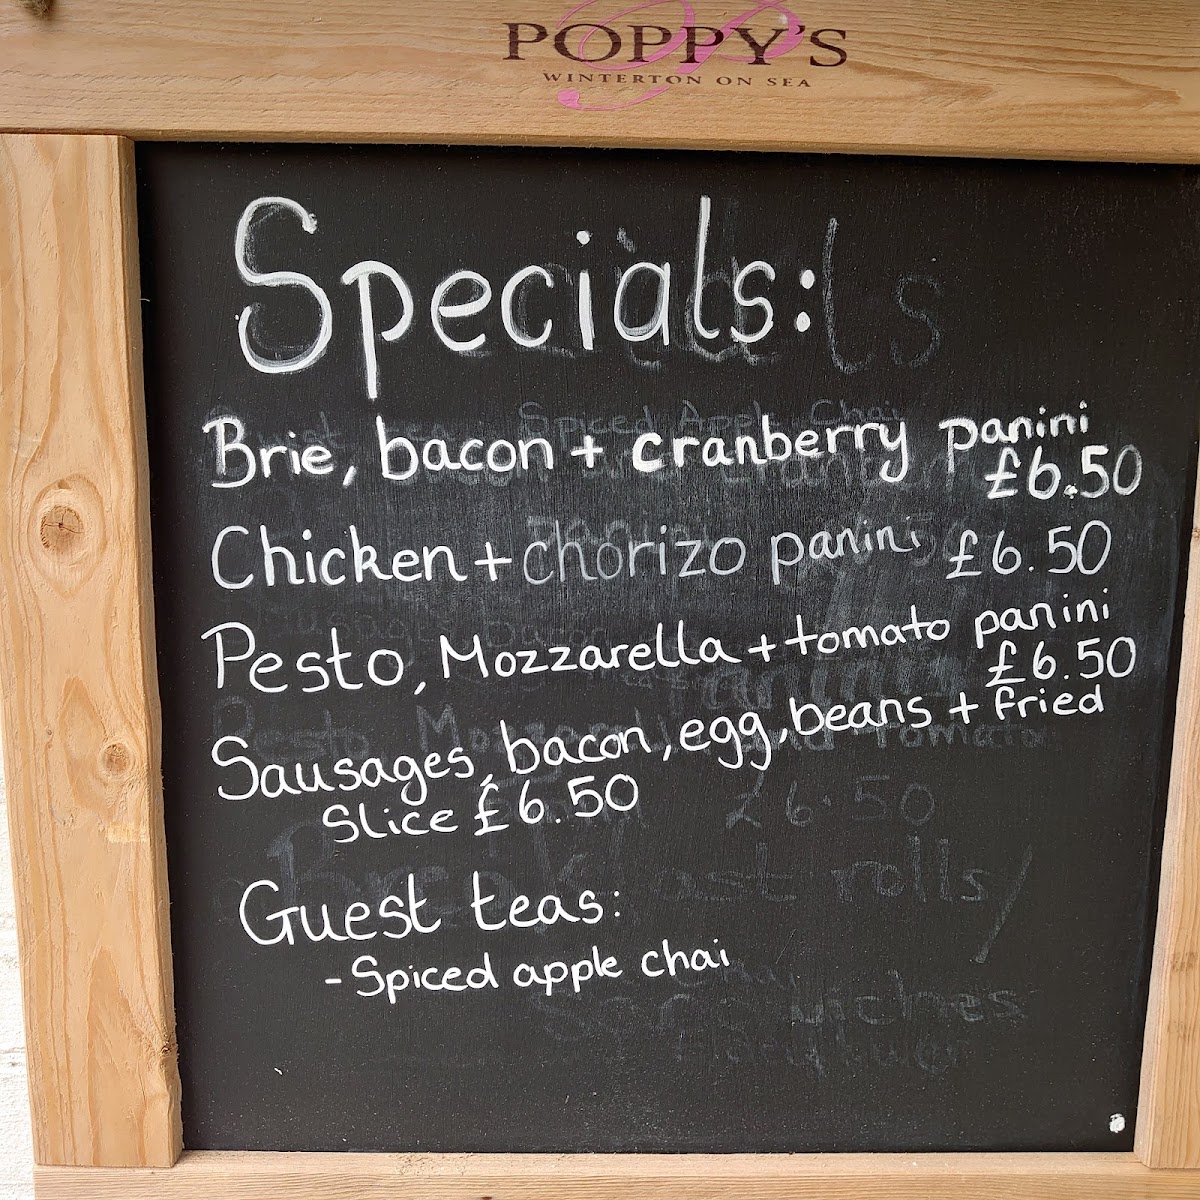 POPPY'S
WINTERTON ON SEA
Specials:
Brie, bacon + cranberry panini
£6.50
Chicken + chorizo panini £6.50
Pesto, Mozzarella + tomato panini
£6.50
Sausages, bacon, egg, beans + fried
Slice £6.50
Guest teas:
- Spiced apple chai